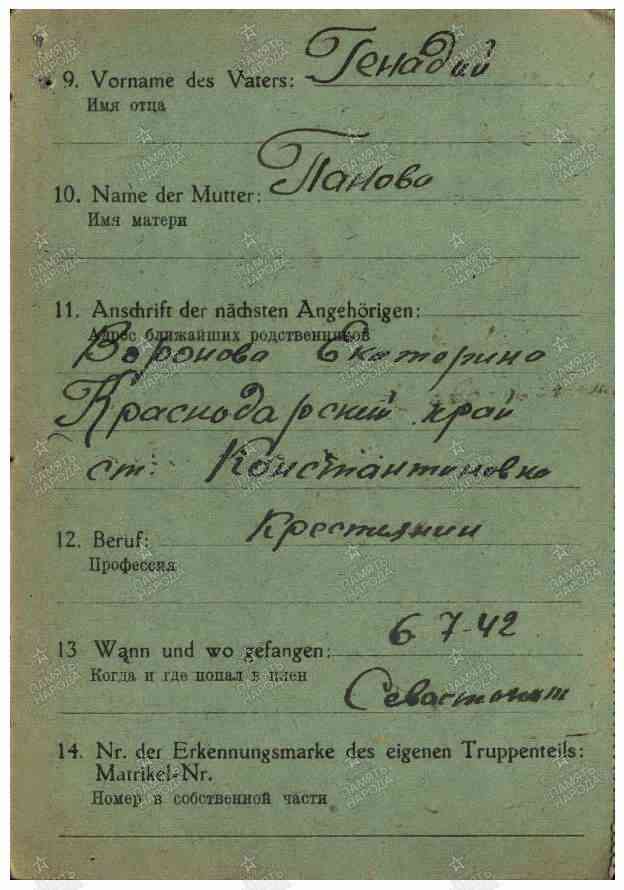 9. Vorname des Vaters: Генадий
Имя отца
10. Name der Mutter: Панова
Имя матери
11. Anschrift der nächsten Angehörigen:
Адрес ближайших родственников
Воронова Екатерина
Краснодарский край
ст. Константиновка
12. Beruf: Крестиянин
Профессия
13 Wann und wo gefangen: 6 7-42
Когда и где попал в плен
14. Nr. der Erkennungsmarke des eigenen Truppenteils:
Matrikel-Nr.
Номер в собственной части
ПАМЯТЬ
НАРОДА